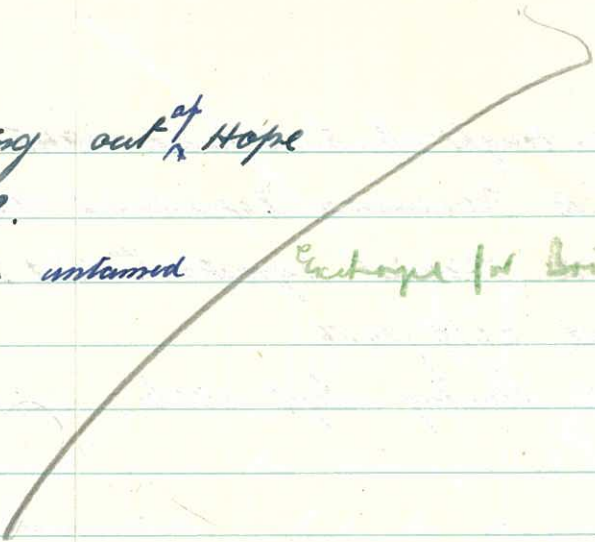 out of Hope
untamed Exchange for